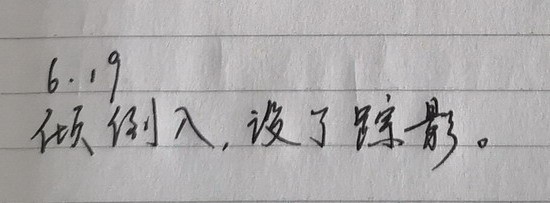 6.19
倾倒入,没了踪影。